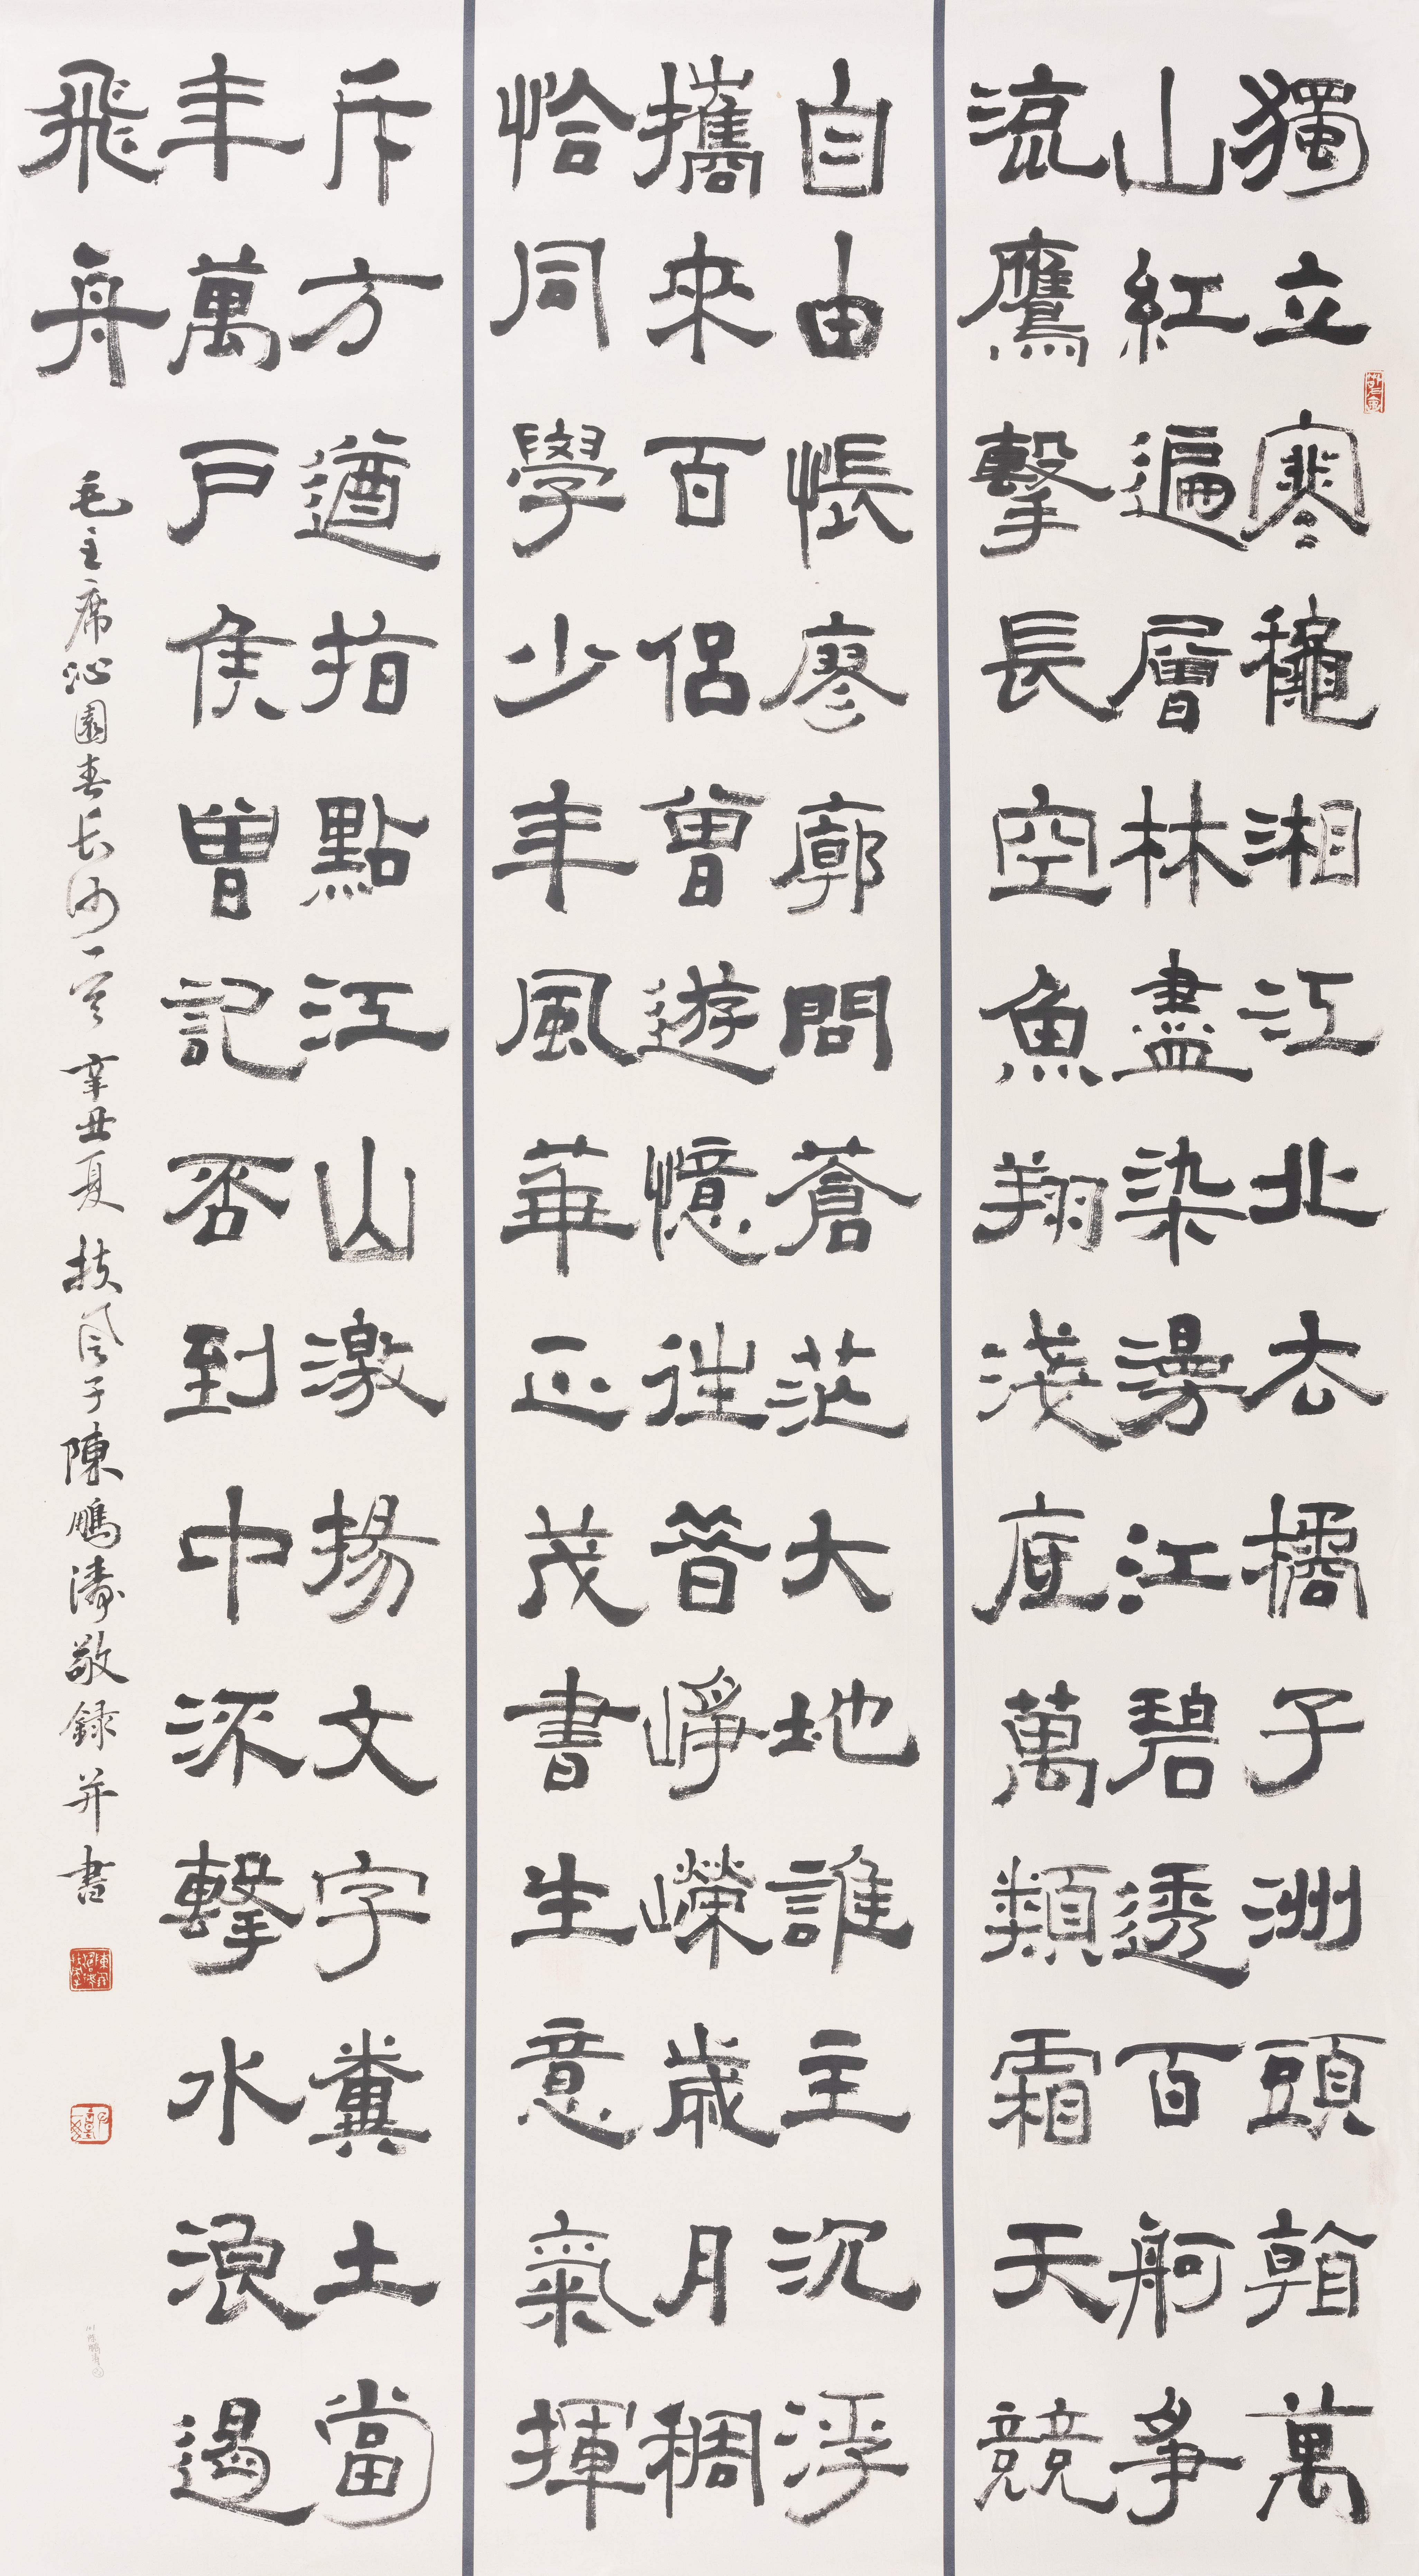 獨立寒穐湘江北去橘子洲頭看萬
山紅遍層林盡染漫江碧透百舸爭
流鷹擊長空魚翔淺底萬類霜天競
自由悵廖廓問蒼茫大地誰主沉浮
攜來百侶曾遊憶往昔崢嶸歲月稠
恰同學少年風華正茂書生意氣揮
斥方遒指點江山激揚文字糞土當
年萬戶侯曾記否到中流擊水浪遏
飛舟
毛主席沁園春長沙一首 辛丑夏 扶風子陳鵬濤敬錄并書